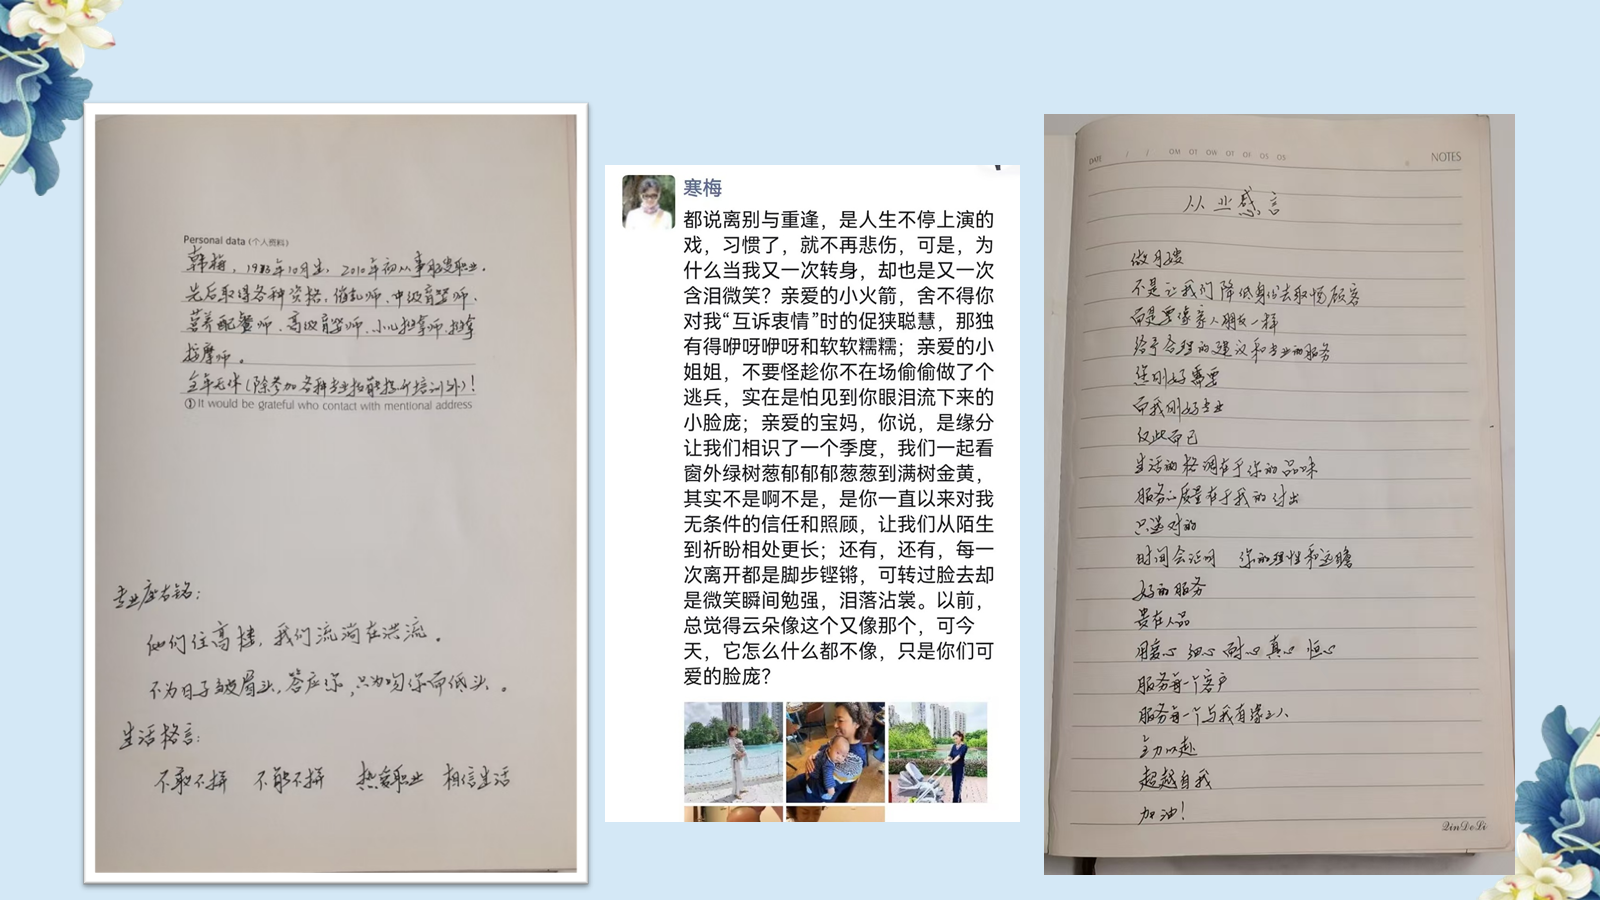 Personal data (个人资料)
韩梅，1983年10月生，2010年初从事月嫂职业。
先后取得各种资格，催乳师、中级育婴师、
营养配餐师、高级育婴师、小儿推拿师、推拿
按摩师。
全年无休(除参加各种专业技能技术培训外)！
①It would be grateful who contact with mentional address
专业座右铭：
他们住高楼，我们流淌在洪流。
不为日子皱眉头，答应你，只为吻你而低头。
生活格言：
不敢不拼 不能不拼 热爱职业 相信生活
寒梅
都说离别与重逢，是人生不停上演的
戏，习惯了，就不再悲伤，可是，为
什么当我又一次转身，却也是又一次
含泪微笑？亲爱的小火箭，舍不得你
对我“互诉衷情”时的促狭聪慧，那独
有得咿呀咿呀和软软糯糯；亲爱的小
姐姐，不要怪趁你不在场偷偷做了个
逃兵，实在是怕见到你眼泪流下来的
小脸庞；亲爱的宝妈，你说，是缘分
让我们相识了一个季度，我们一起看
窗外绿树葱郁郁郁葱葱到满树金黄，
其实不是啊不是，是你一直以来对我
无条件的信任和照顾，让我们从陌生
到祈盼相处更长；还有，还有，每一
次离开都是脚步铿锵，可转过脸去却
是微笑瞬间勉强，泪落沾裳。以前，
总觉得云朵像这个又像那个，可今
天，它怎么什么都不像，只是你们可
爱的脸庞？
DATE / /
NOTES
从业感言
做月嫂
不是让我们降低身份去取悦顾客
而是要像家人朋友一样
给予合理的建议和专业的服务
您刚好需要
而我刚好专业
仅此而已
生活的格调在于你的品味
服务的质量在于我的付出
只选对的
时间会证明 你的理性和远瞻
好的服务
贵在人品
用爱心 细心 耐心 真心 恒心
服务每一个客户
服务每一个与我有缘之人
全力以赴
超越自我
加油！
QinDeLi